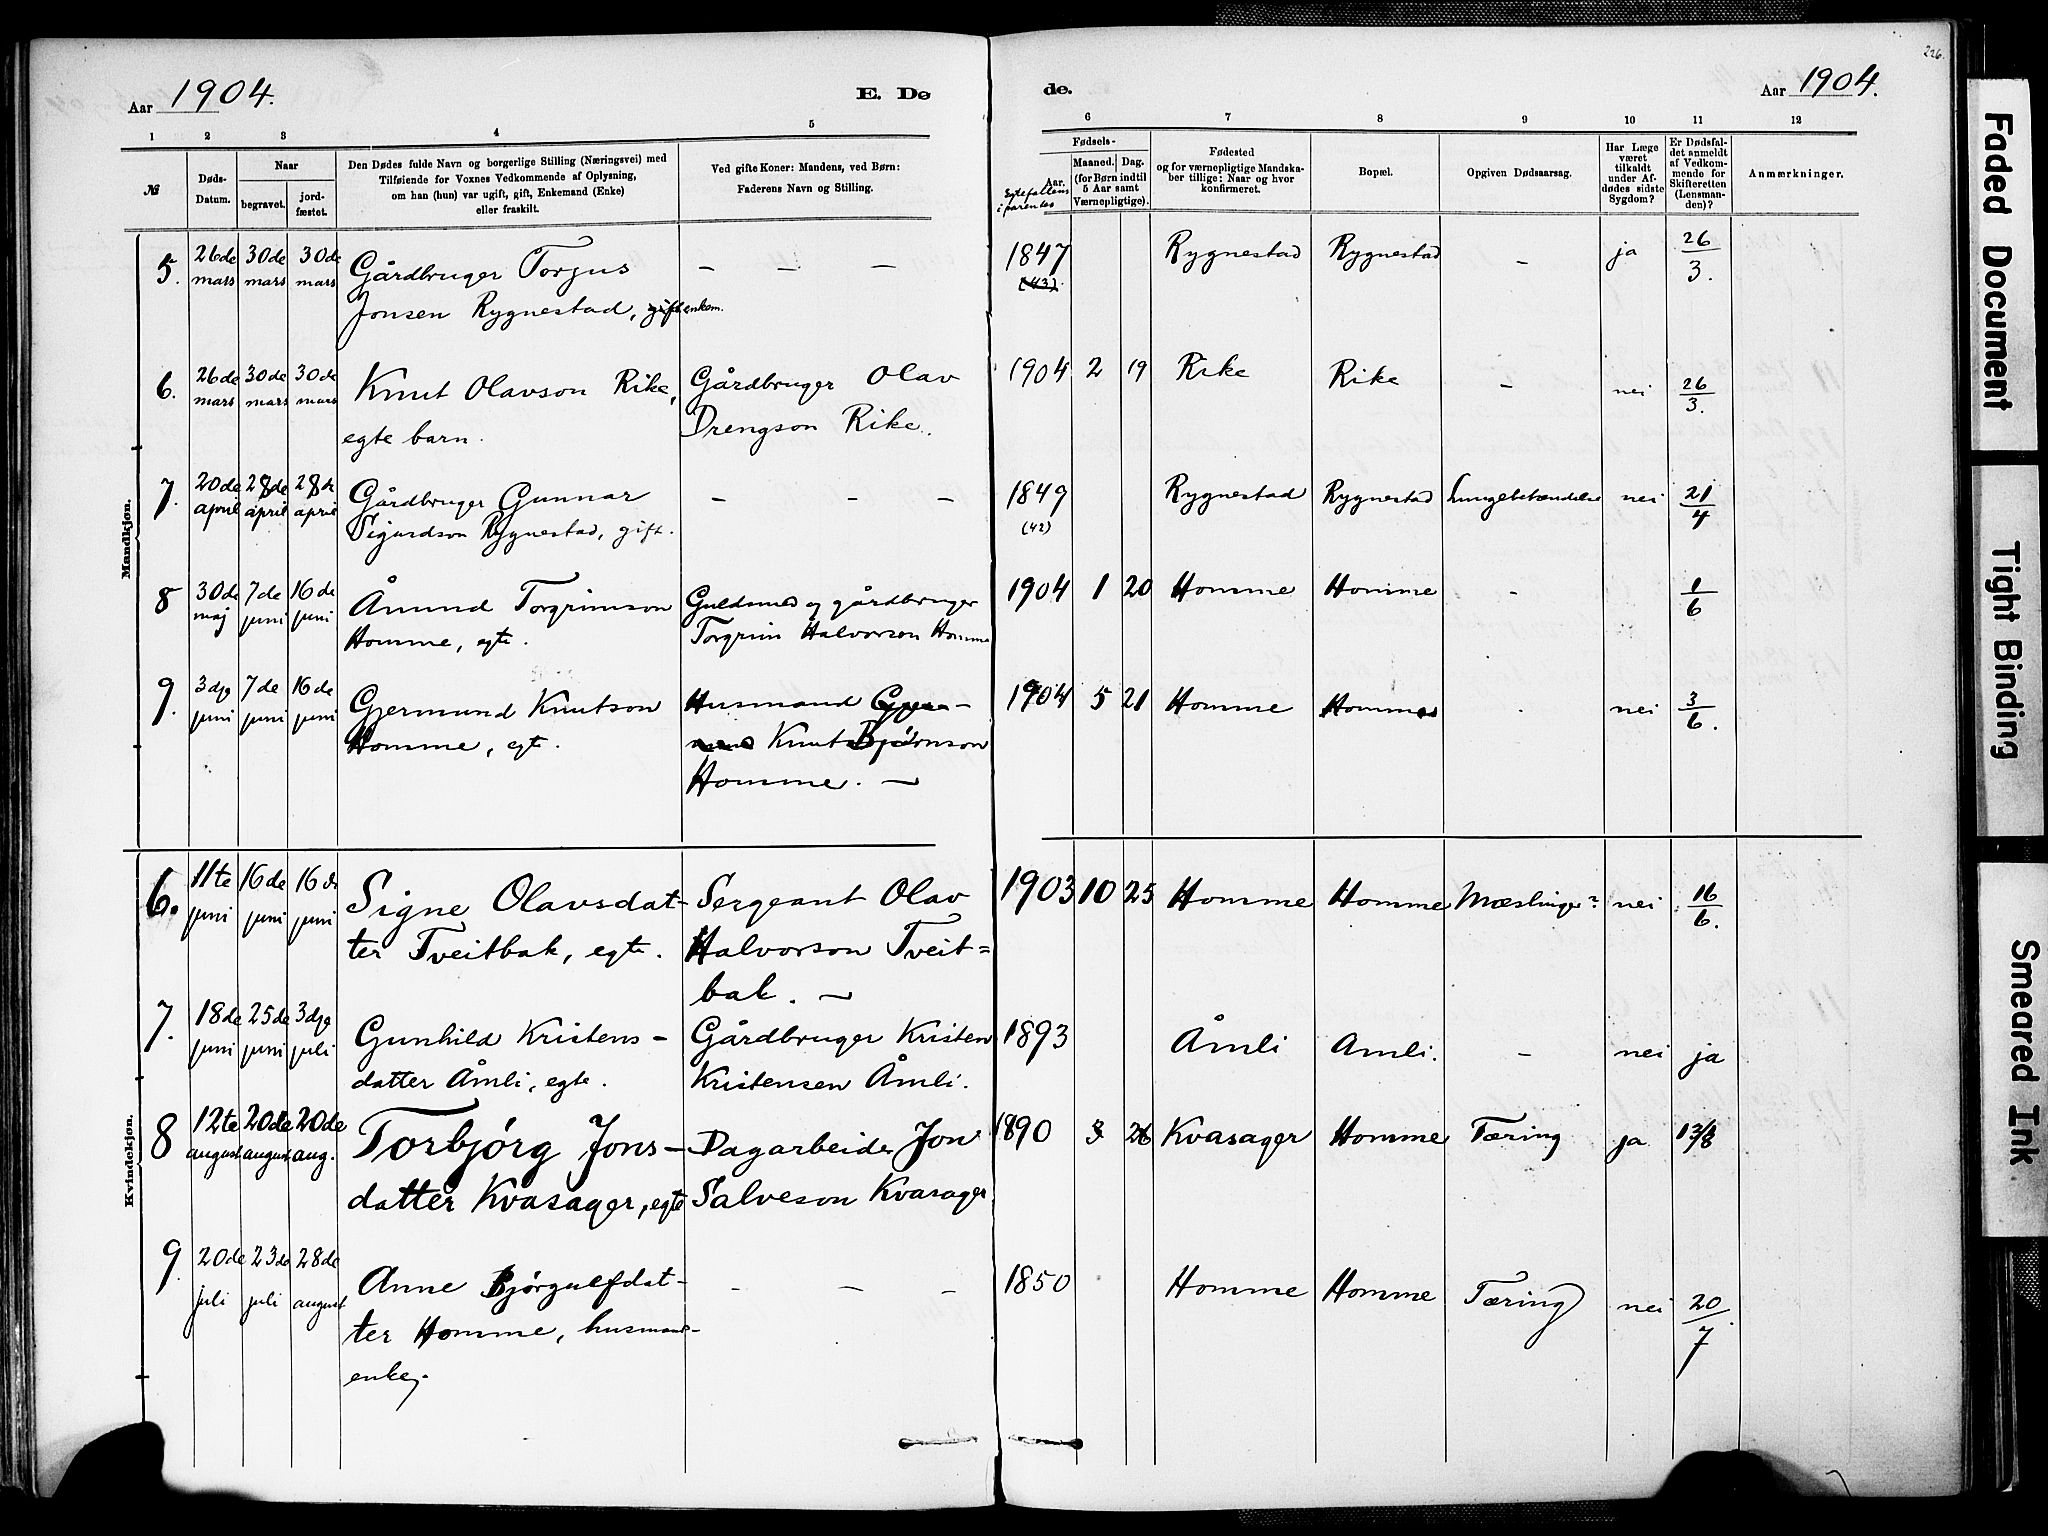 226.
Aar 1904.
E. Dø
de.
Aar 1904.
1 2 3 4 5 6 7 8 9 10 11 12
№
Døds-
Datum.
Naar
begravet.
jord-
fæstet.
Den Dødes fulde Navn og borgerlige Stilling (Næringsvei) med
Tilføiende for Voxnes Vedkommende af Oplysning,
om han (hun) var ugift, gift, Enkemand (Enke)
eller fraskilt.
Ved gifte Koner: Mandens, ved Børn:
Faderens Navn og Stilling.
Fødsels-
Aar.
Maaned.
Dag.
(for Børn indtil
5 Aar samt
Værnepligtige).
Egtefællens
i parentes
Fødested
og for værnepligtige Mandska-
ber tillige: Naar og hvor
konfirmeret.
Bopæl.
Opgiven Dødsaarsag.
Har Læge
været
tilkaldt
under Af-
dødes sidste
Sygdom?
Er Dødsfal-
det anmeldt
af Vedkom-
mende for
Skifteretten
(Lensman-
den)?
Anmærkninger.
Mandkjøn.
5. 26de mars 30de mars 30de mars Gårdbruger Torgus — — — 1847 (43) Rygnestad Rygnestad — ja 26/3.
Jonsen Rygnestad, gift enkem.
6. 26de mars 30de mars 30de mars Knut Olavson Rike, Gårdbruger Olav 1904 2 19 Rike Rike — nei 26/3.
egte barn. Drengson Rike.
7. 20de april 28de april 28de april Gårdbruger Gunnar — — — 1849 (42) Rygnestad Rygnestad Lungebetændelse nei 21/4
Sigurdson Rygnestad, gift.
8 30de maj 7de juni 16de juni Åmund Torgrimson Guldsmed og gårdbruger 1904 1 20 Homme Homme - 1/6
Homme, egte. Torgrim Halvorson Homme
9. 3dje juni 7de juni 16de juni Gjermund Knutson Husmand 1904 5 21 Homme Homme . nei 3/6.
Homme, egte. Knut Bjørnson
Homme. —
Kvindekjøn.
6. 11te juni 16de juni 16de juni Signe Olavsdat- Sergeant Olav 1903 10 25 Homme Homme Mæslinger? nei 16/6.
ter Tveitbak, egte. Halvorson Tveit=
bak. —
7. 18de juni 25de juni 3dje juli Gunhild Kristens- Gårdbruger Kristen 1893 Åmli Amli. — nei ja
datter Åmli, egte. Kristensen Åmli.
8 12te august 20de august 20de aug. Torbjørg Jons- Dagarbeider Jon 1890 3 26 Kvasager Homme Tæring ja 13/8
datter Kvasager, egte Salveson Kvasager.
9. 20de juli 23de juli 28de august Anne Bjørgulfdat- — — — 1850 Homme Homme Tæring nei 20/7.
ter Homme, husmands-
enke.
Faded Document
Tight Binding
Smeared Ink